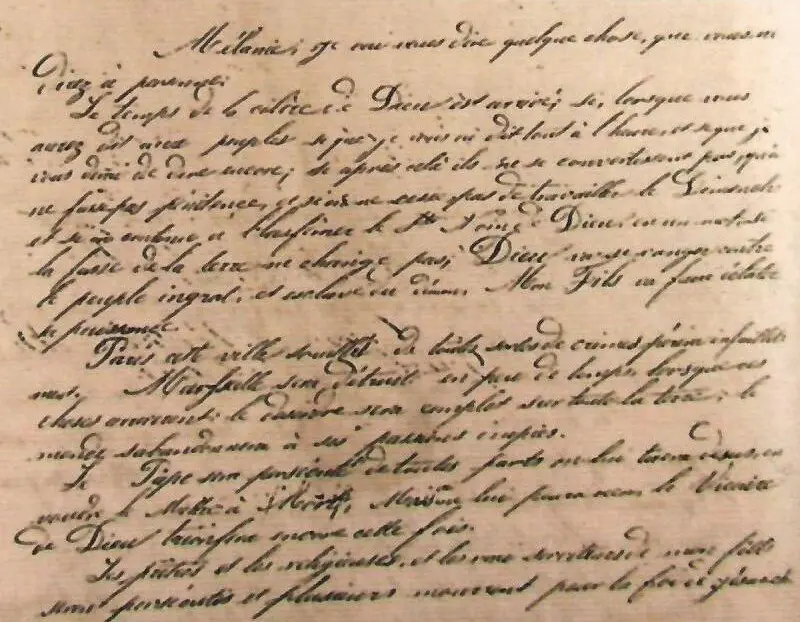 Mélanie, je vai vous dire quelque chose, que vous ne
direz à personne:
Le temps de la colère de Dieu est arrivé; si, lorsque vous
aurez dit aux peuples se que je vous ai dit tout à l'heure, et se que je
vous dirai de dire encore; si après celà ils ne se convertissent pas, qu'on
ne fasse pas pénitence, et si on ne cesse pas de travailler le Dimanche
et si on continue à blasfemer le St Nom de Dieu, en un mot, si
la fasse de la terre ne change pas; Dieu va se vanger contre
le peuple ingrat, et esclave du démon. Mon Fils va faire éclater
sa puissance
Paris cette ville souillé de toutes sortes de crimes périra infaillible
ment. Marseille sera détruit en peu de temps, lorsque ces
choses arriveront, le désordre sera complet sur toute la terre; le
monde sabandonnera à ses passions impies.
Le Pape sera persécuté de toutes parts on lui tirera dessus, on
voudra le Mettre à Mort, Mais on lui pourra rien, le Vicaire
de Dieu triomfera encore cette fois.
Les prêtres et les religieuses, et les vrai serviteurs de mon fils
seront persécutés et plusieurs mourront pour la foi de